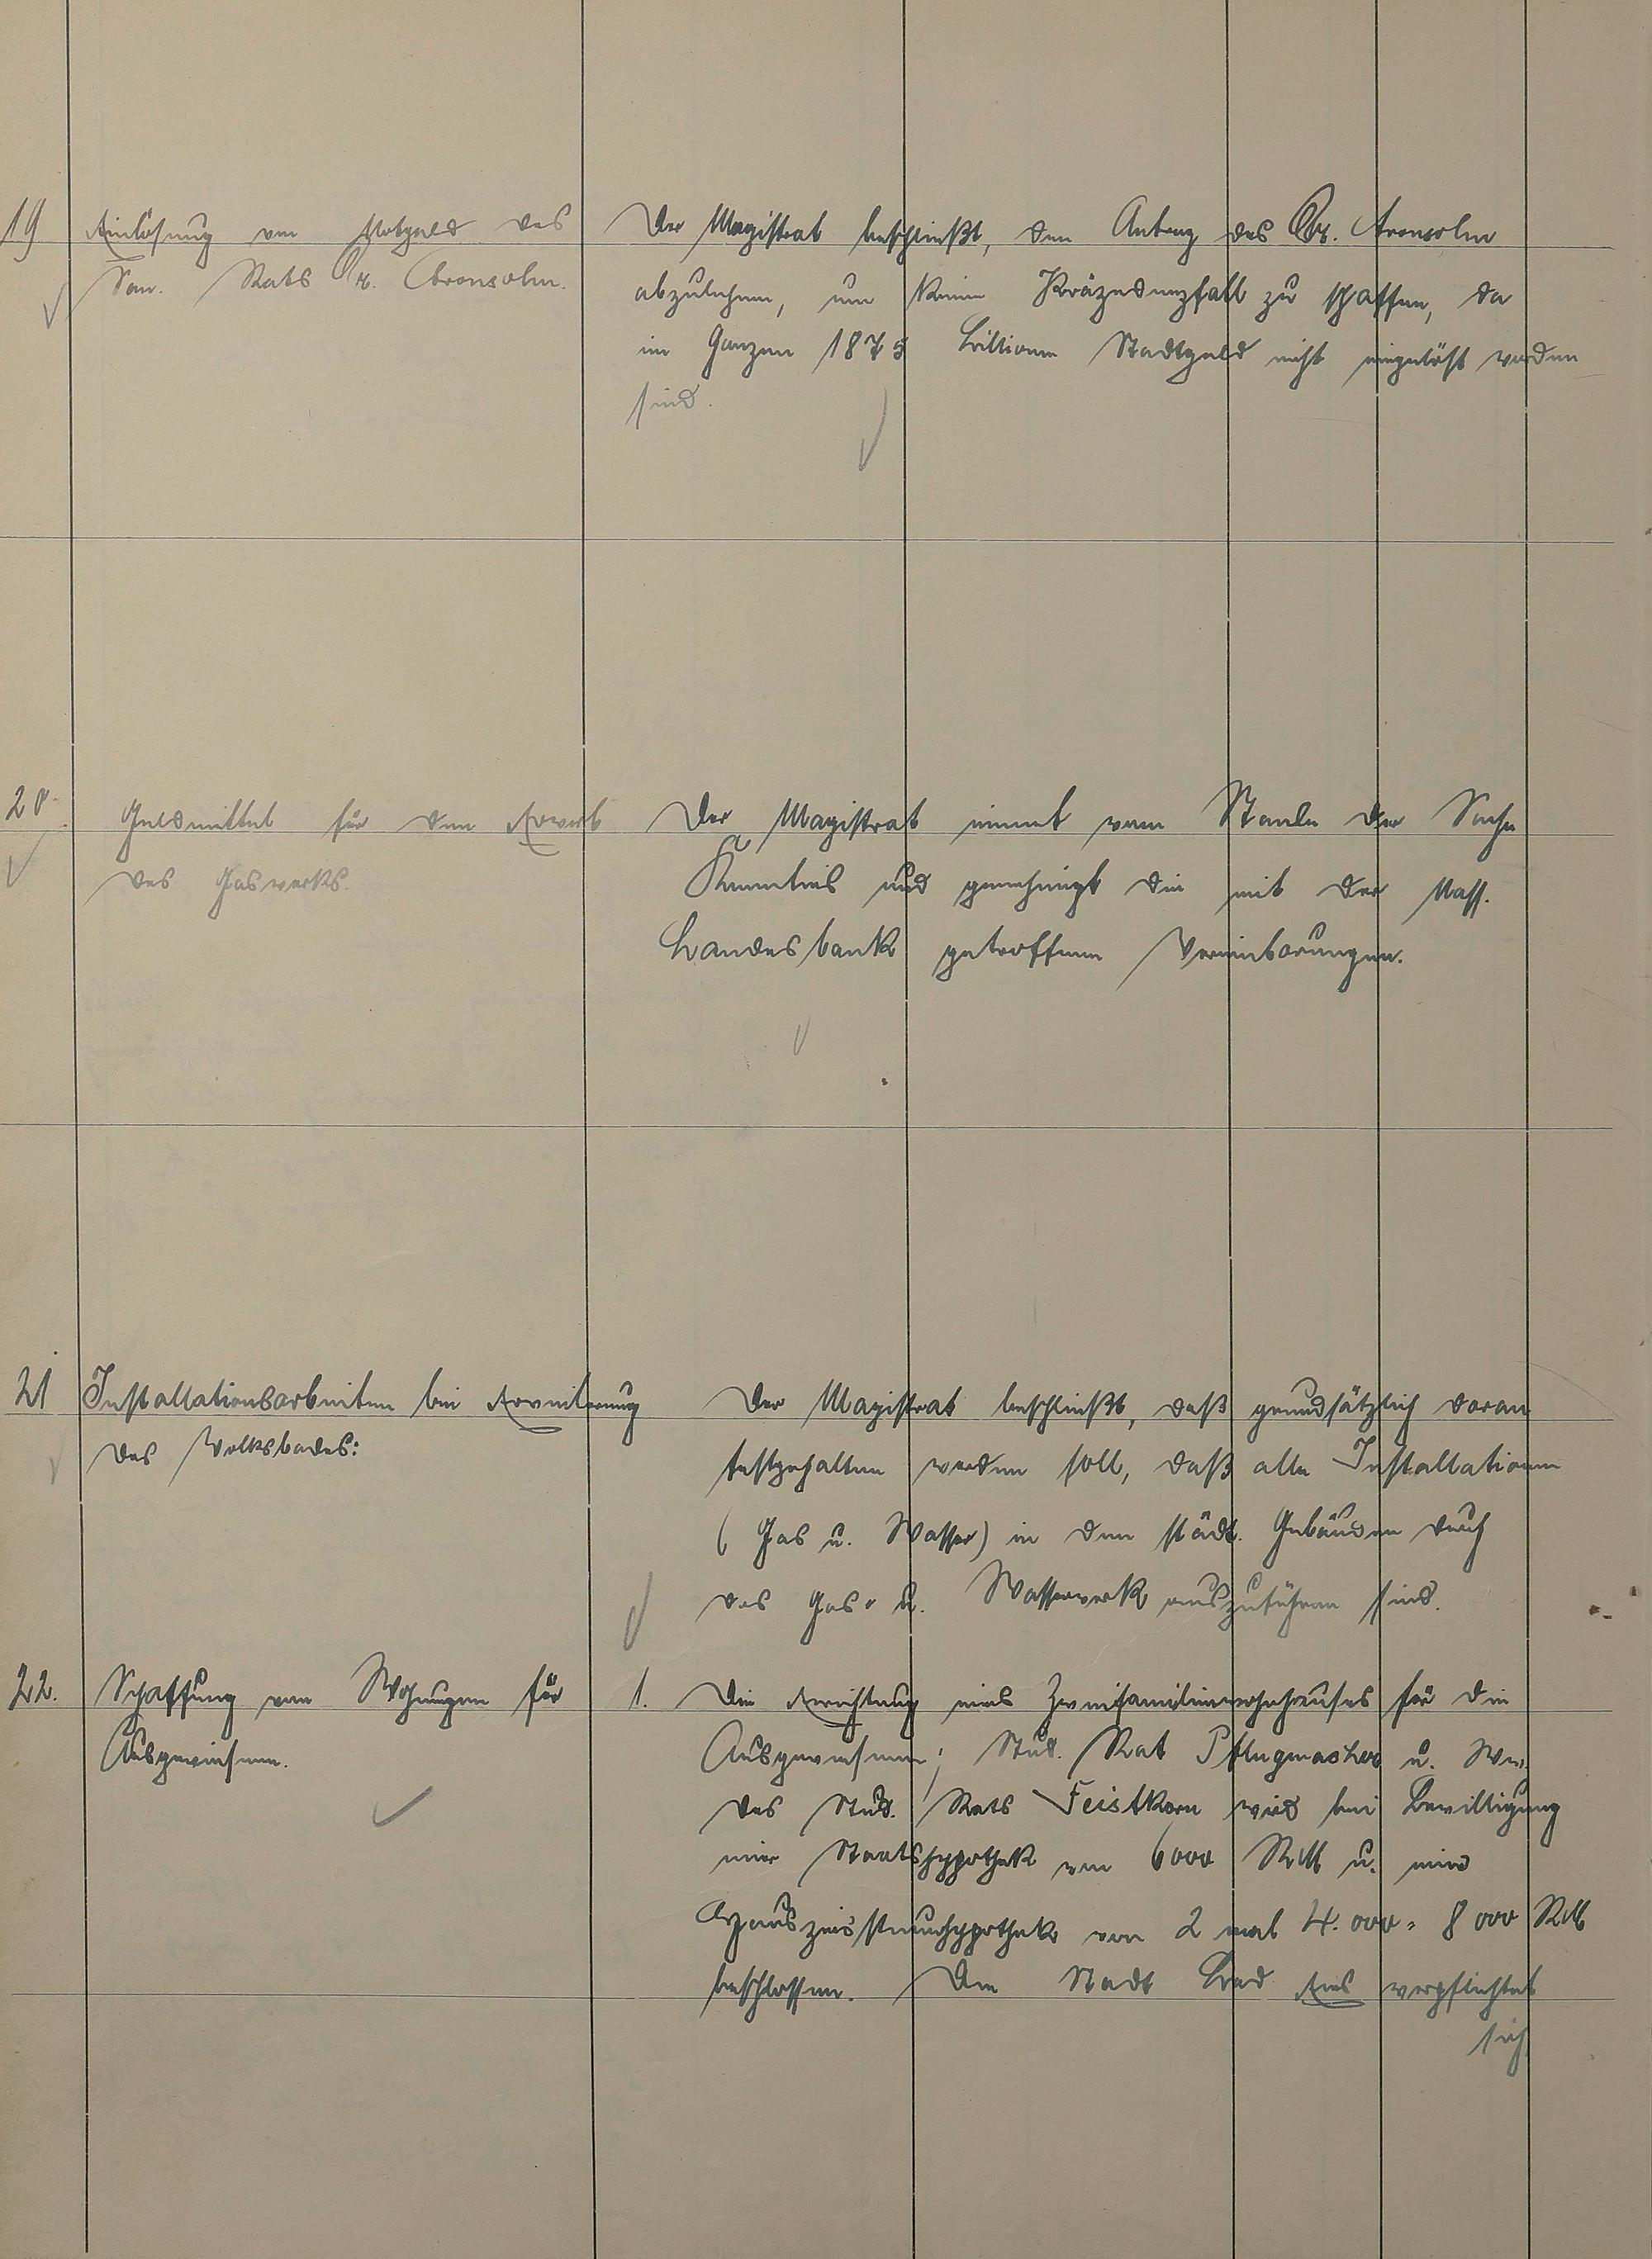 19 Einlösung von Notgeld des
San. Rats Dr. Aronsohn.
Der Magistrat beschließt, den Antrag des Dr. Aronsohn
abzulehnen, um keinen Präzedenzfall zu schaffen, da
im Ganzen 1875 Billionen Stadtgeld nicht eingelöst worden
sind.
20. Geldmittel für den Erwerb
des Gaswerks.
Der Magistrat nimmt vom Stande der Sache
Kenntnis und genehmigt die mit der Nass.
Landesbank getroffenen Vereinbarungen.
21 Installationsarbeiten bei Erweiterung
des Volksbades:
Der Magistrat beschließt, daß grundsätzlich daran
festgehalten werden soll, daß alle Installationen
(Gas u. Wasser) in den städt. Gebäuden durch
das Gas- u. Wasserwerk auszuführen sind.
22. Schaffung von Wohnungen für
Ausgewiesene.
1. Die Errichtung eines Zweifamilienwohnhauses für die
Ausgewiesenen; Stud. Rat Pflugmacher u. Ww.
des Stud. Rats Feistkorn wird bei Bewilligung
einer Staatshypothek von 6000 RM u. einer
Hauszinssteuerhypothek von 2 mal 4.000 = 8000 RM
beschlossen. Die Stadt Bad Ems verpflichtet
sich